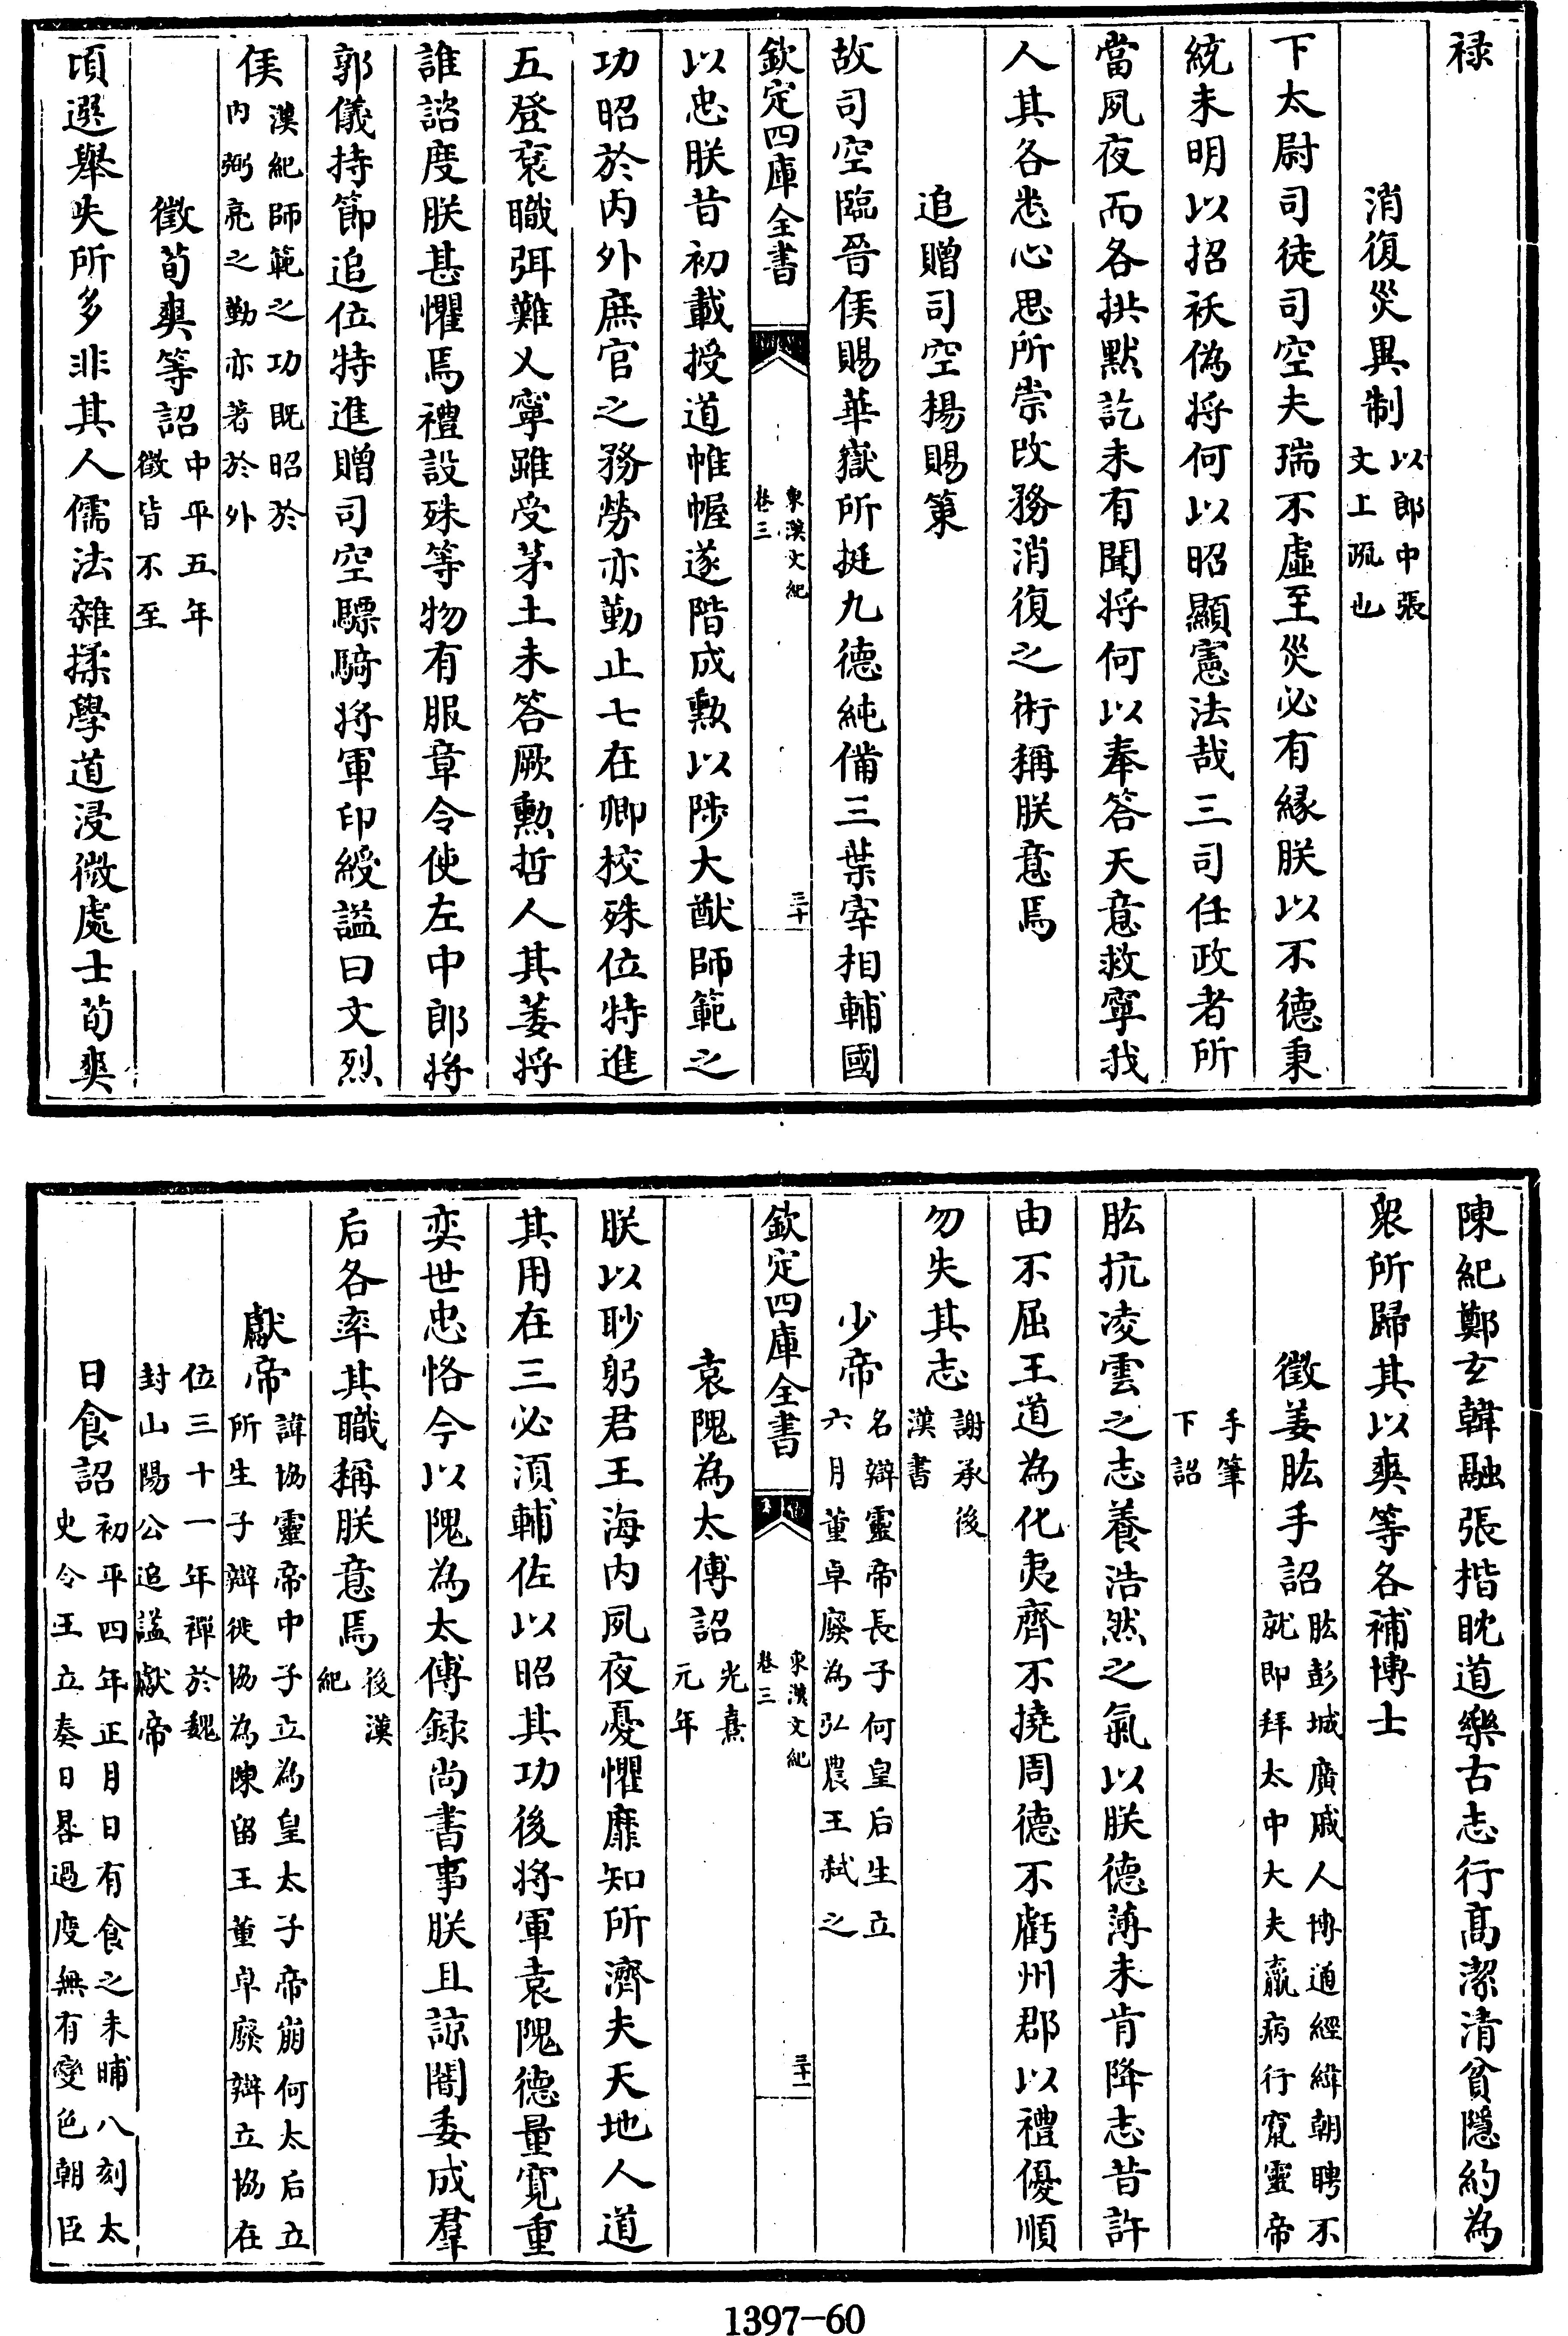 禄
消復災異制以郎中張文上疏也
下太尉司徒司空夫瑞不虛至災必有縁朕以不德秉
統未明以招祅偽將何以昭顯憲法哉三司任政者所
當夙夜而各拱默訖未有聞將何以奉答天意救寧我
人其各悉心思所崇改務消復之術稱朕意焉
追贈司空楊賜策
故司空臨晉侯賜華嶽所挺九德純備三葉宰相輔國
欽定四庫全書
東漢文紀
卷三
三十
以忠朕昔初載授道帷幄遂階成勲以陟大猷師範之
功昭於内外庶官之務勞亦勤止七在卿校殊位特進
五登衮職弭難乂寧雖受茅土未答厥勲哲人其萎將
誰諮度朕甚懼焉禮設殊等物有服章令使左中郎將
郭儀持節追位特進贈司空驃騎將軍印綬謚曰文烈
侯漢紀師範之功既昭於内弼亮之勤亦著於外
徵荀爽等詔中平五年徵皆不至
頃選舉失所多非其人儒法雜揉學道浸微處士荀爽
陳紀鄭玄韓融張楷眈道樂古志行髙潔清貧隱約為
衆所歸其以爽等各補博士
徵姜肱手詔肱彭城廣戚人博通經緯朝聘不就即拜太中大夫羸病行竄靈帝
手筆下詔
肱抗凌雲之志養浩然之氣以朕德薄未肯降志昔許
由不屈王道為化夷齊不撓周德不虧州郡以禮優順
勿失其志謝承後漢書
少帝名辯靈帝長子何皇后生立六月董卓廢為弘農王弑之
欽定四庫全書
東漢文紀
卷三
三十一
袁隗為太傅詔光熹元年
朕以眇躬君王海内夙夜憂懼靡知所濟夫天地人道
其用在三必湏輔佐以昭其功後將軍袁隗德量寛重
奕世忠恪今以隗為太傅録尚書事朕且諒闇委成羣
后各率其職稱朕意焉後漢紀
獻帝諱協靈帝中子立為皇太子帝崩何太后立所生子辯徙協為陳留王董卓廢辯立協在
位三十一年禪於魏封山陽公追諡獻帝
日食詔初平四年正月日有食之未晡八刻太史令王立奏日晷過度無有變色朝臣
1397-60